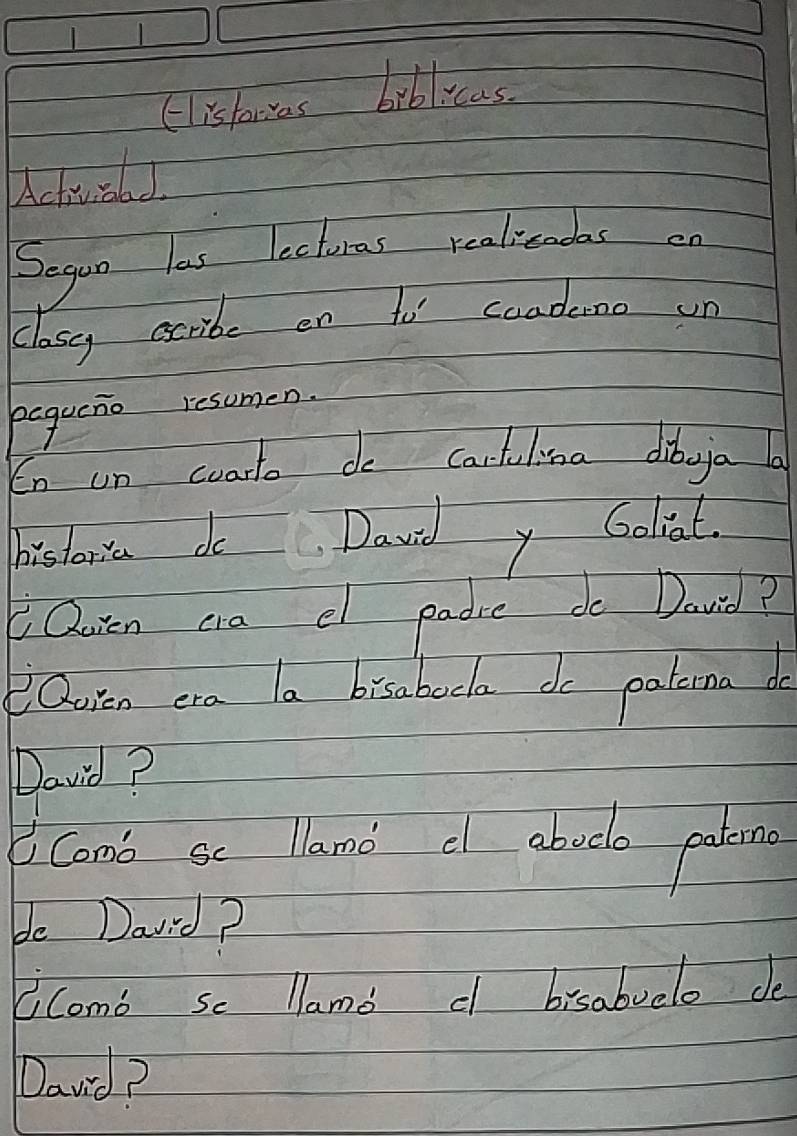 Historias biblicas.
Actividad.
Segun las lecturas realizadas en
clasey escribe en tú cuaderno un
pequeño resumen.
En un cuarto de cartulina dibuja la
historia de David y Goliat.
¿Quien era el padre de David?
¿Quien era la bisabuela de paterna de
David?
¿Comó se llamó el abuelo paterno
de David?
¿Comó se llamó el bisabuelo de
David?